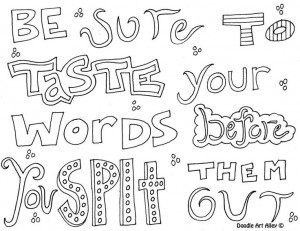 BE SURE TO
TASTE your
WORDS before
You SPIt THEM
OUT
Doodle Art Alley ©